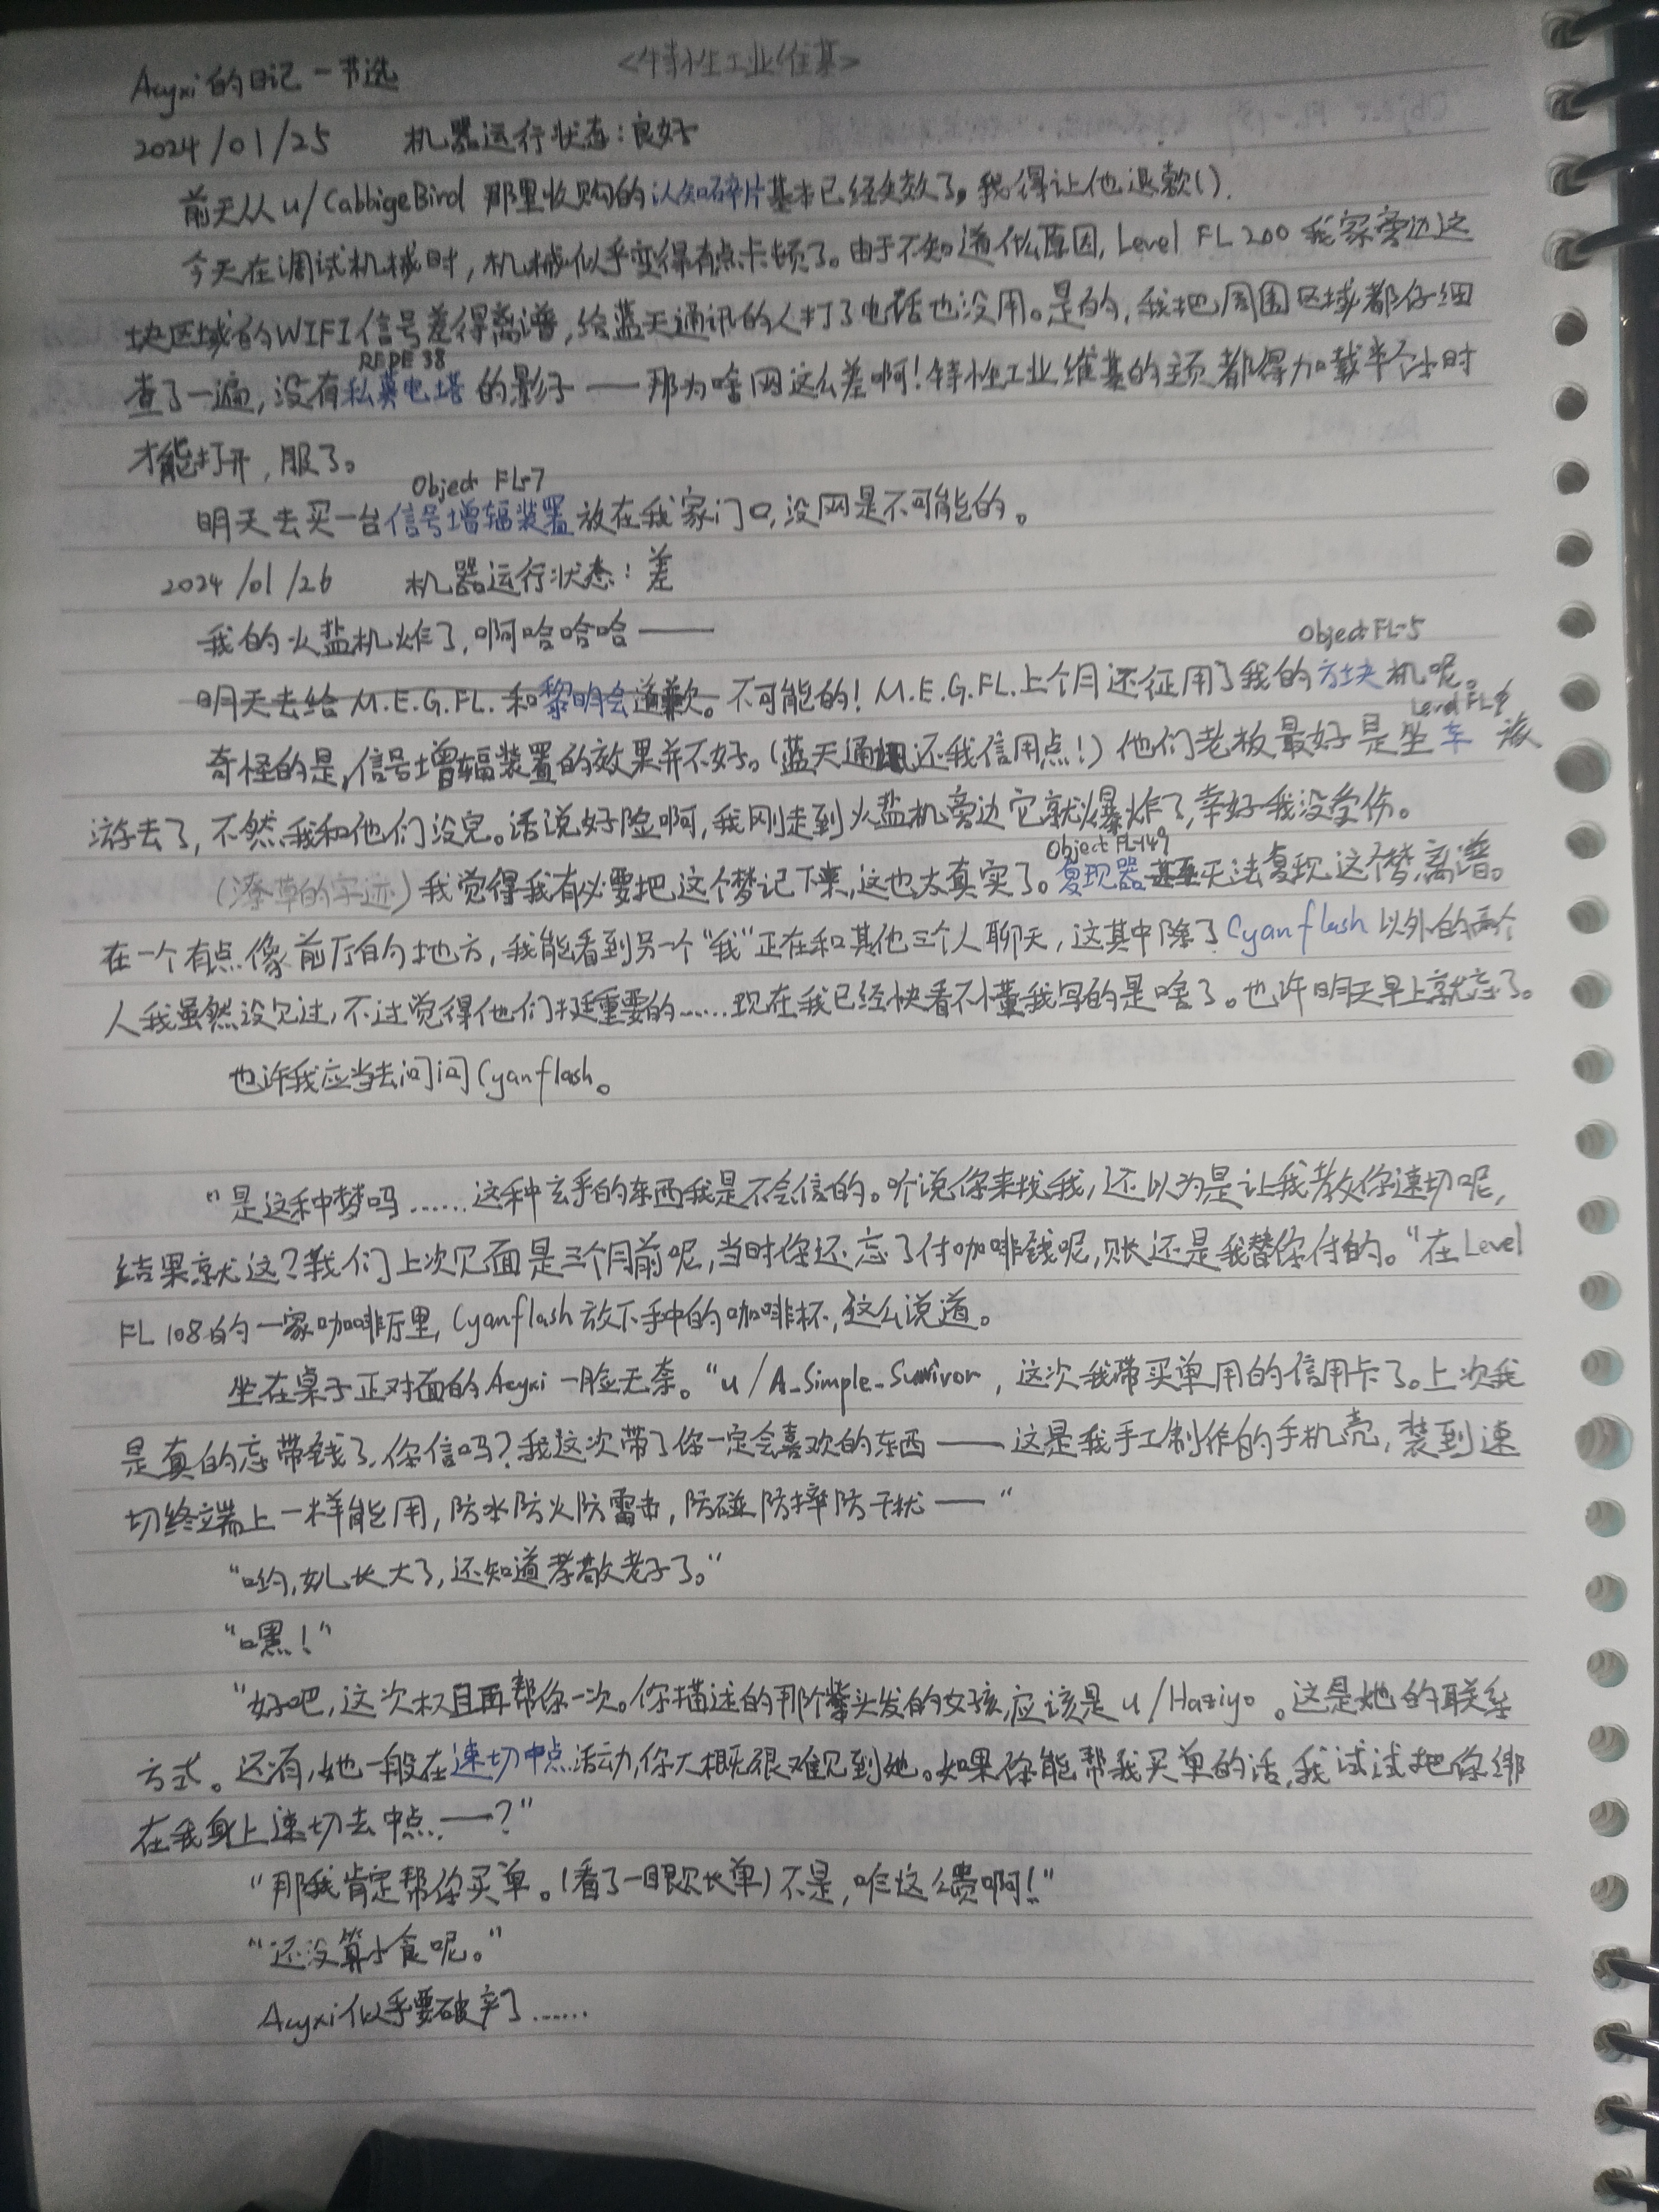 <特性工业维基>
Acyxi的日记一节选
2024/01/25 机器运行状态:良好
前天从u/CabbigeBird 那里收购的认知碎片基本已经失效了,我得让他退款().
今天在调试机械时,机械似乎变得有点卡顿了。由于不知道什么原因,Level FL 200 我家旁边这
块区域的WIFI信号差得离谱,给蓝天通讯的人打了电话也没用。是的,我把周围区域都仔细
REPE 38
查了一遍,没有私募电塔的影子——那为啥网这么差啊!特性工业维基的主页都得加载半个小时
才能打开,服了。
Object FL-7
明天去买一台信号增辐装置放在我家门口,没网是不可能的。
2024/01/26 机器运行状态:差
我的火盐机炸了,啊哈哈哈——
Object FL-5
明天去给M.E.G.FL.和黎明会道歉。不可能的!M.E.G.FL.上个月还征用了我的方块机呢。
Level FL
奇怪的是,信号增辐装置的效果并不好。(蓝天通讯还我信用点!)他们老板最好是坐车旅
游去了,不然我和他们没完。话说好险啊,我刚走到火盐机旁边它就爆炸了,幸好我没受伤。
Object FL-149
(潦草的字迹)我觉得我有必要把这个梦记下来,这也太真实了。复现器甚至无法复现这个梦,离谱。
在一个有点像前厅的地方,我能看到另一个“我”正在和其他三个人聊天,这其中除了Cyanflash以外的两个
人我虽然没见过,不过觉得他们挺重要的……现在我已经快看不懂我写的是啥了。也许明天早上就忘了。
也许我应当去问问Cyanflash。
“是这种梦吗……这种玄乎的东西我是不会信的。听说你来找我,还以为是让我教你速切呢,
结果就这?我们上次见面是三个月前呢,当时你还忘了付咖啡钱呢,账还是我替你付的。”在Level
FL 108的一家咖啡厅里,Cyanflash放下手中的咖啡杯,这么说道。
坐在桌子正对面的Acyxi一脸无奈。“u/A_Simple_Survivor,这次我带买单用的信用卡了。上次我
是真的忘带钱了,你信吗?我这次带了你一定会喜欢的东西——这是我手工制作的手机壳,装到速
切终端上一样能用,防水防火防雷击,防碰防摔防干扰——”
“哟,女儿长大了,还知道孝敬老子了。”
“嘿!”
“好吧,这次权且再帮你一次。你描述的那个紫头发的女孩,应该是u/Haziyo。这是她的联系
方式。还有,她一般在速切中点活动,你大概很难见到她。如果你能帮我买单的话,我试试把你绑
在我身上速切去中点——?”
“那我肯定帮你买单。(看了一眼账单)不是,咋这么贵啊!”
“还没算小食呢。”
Acyxi似乎要破产了……